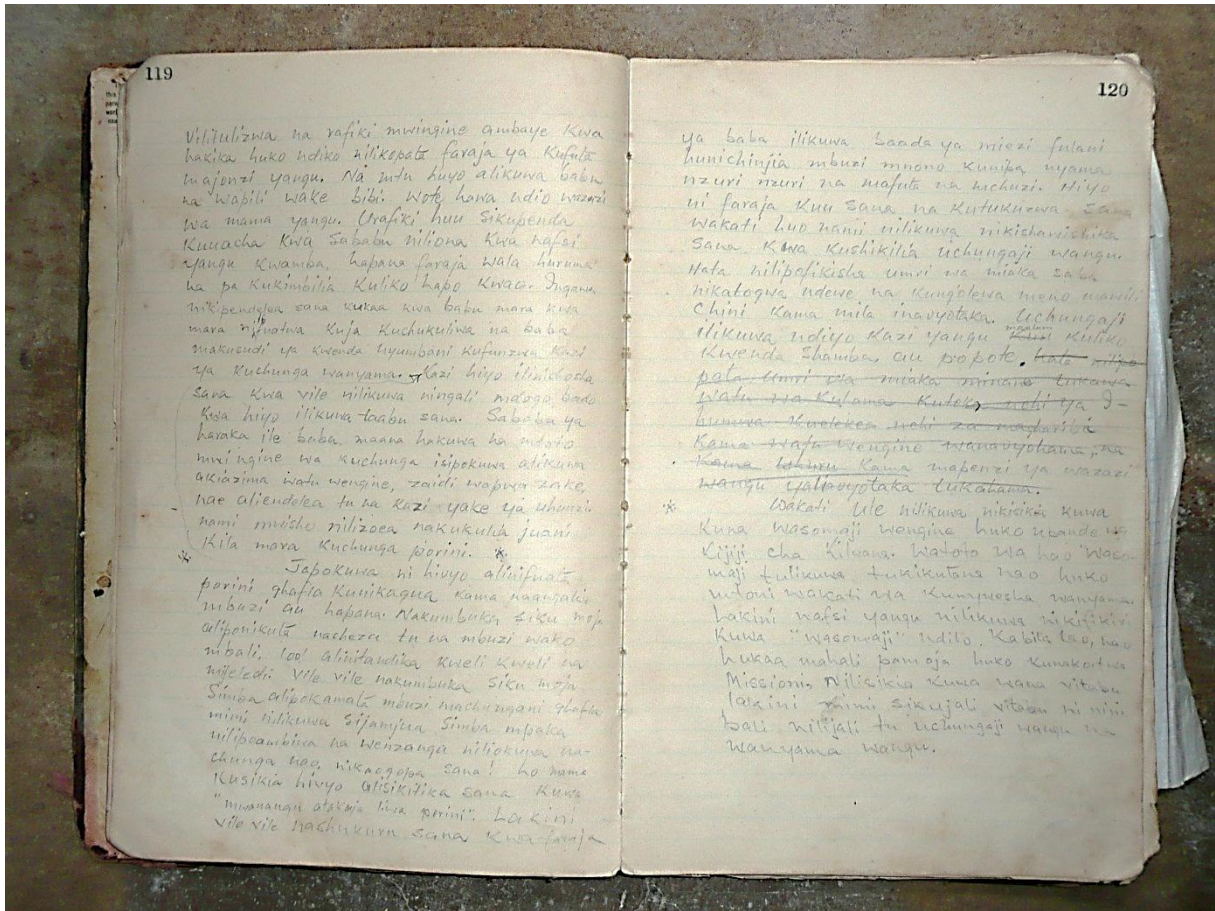 119
Vilitulizwa na rafiki mwingine ambaye kwa
hakika huko ndiko nilikopata faraja ya kufuta
majonzi yangu. Na mtu huyo alikuwa babu
na wapili wake bibi. Wote hawa ndio wazazi
wa mama yangu. Urafiki huu sikupenda
kuuacha kwa sababu niliona kwa nafsi
yangu kwamba, hapana faraja wala huruma
na pa kukimbilia kuliko hapo kwao. Ingawa
nikipendelea sana kukaa kwa babu mara kwa
mara kuja kuchukuliwa na baba
makusudi ya kwenda nyumbani kufunzwa kazi
ya kuchunga wanyama. Kazi hiyo ilinichosha
sana kwa vile nilikuwa ningali mdogo bado
kwa hiyo ilikuwa taabu sana. Sababu ya
haraka ile baba maana hakuwa na mtoto
mwingine wa kuchunga isipokuwa alikuwa
akiazima watu wengine, zaidi wapwa zake,
nae aliendelea tu na kazi yake ya uhunzi.
nami mwisho nilizoea nakukulia juani
kila mara kuchunga porini. *
Japokuwa ni hivyo alinifuata
porini ghafla kunikagua kama naangalia
mbuzi au hapana. Nakumbuka siku moja
aliponikuta nacheza tu na mbuzi wako
mbali, loo! alinitandika kweli kweli na
mjeledi. Vile vile nakumbuka siku moja
Simba alipokamata mbuzi machungani ghafla
mimi nilikuwa sijamjua Simba mpaka
nilipoambiwa na wenzangu niliokuwa na-
chunga nao, nikaogopa sana! ho mama
kusikia hivyo alisikitika sana kuwa
"mwanangu atakuja liwa porini". Lakini
vile vile nashukuru sana kwa faraja
120
ya baba ilikuwa baada ya miezi fulani
hunichinjia mbuzi mnono kunipa nyama
nzuri nzuri na mafuta na mchuzi. Hiyo
ni faraja kuu sana na kutukuzwa sana
wakati huo nami nilikuwa nikishawishika
sana kwa kushikilia uchungaji wangu.
Hata nilipofikisha umri wa miaka saba
nikatogwa ndewe na kung'olewa meno mawili
chini kama mila inavyotaka. Uchungaji
ilikuwa ndiyo kazi yangu kuliko
kwenda shamba au popote. hata nilipo
pata umri wa miaka minane tukawa
watu wa kuhama kutoka nchi ya I-
kuelekea nchi za magharibi
kama watu wengine wanavyohama, na
kama mapenzi ya wazazi
wangu yalivyotaka tukahama.
* Wakati ule nilikuwa nikisikia kuwa
kuna wasomaji wengine huko upande wa
kijiji cha Watoto wa hao waso-
maji tulikuwa tukikutana nao huko
mtoni wakati wa kunywesha wanyama.
Lakini nafsi yangu nilikuwa nikifikiri
kuwa "wasomaji" ndilo kabila lao, nao
hukaa mahali pamoja huko kunakoitwa
Missioni. Nilisikia kuwa wana vitabu
lakini mimi sikujali vitabu ni nini
bali nilijali tu uchungaji wangu na
wanyama wangu.